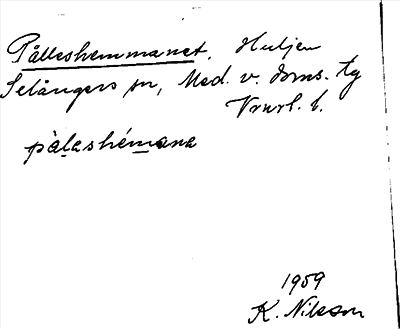 Pålleshemmanet, Huljen
Selångers sn, Med. v. doms. tg
Vrurl. l.
pàlashémana
1959
K. Nilsson